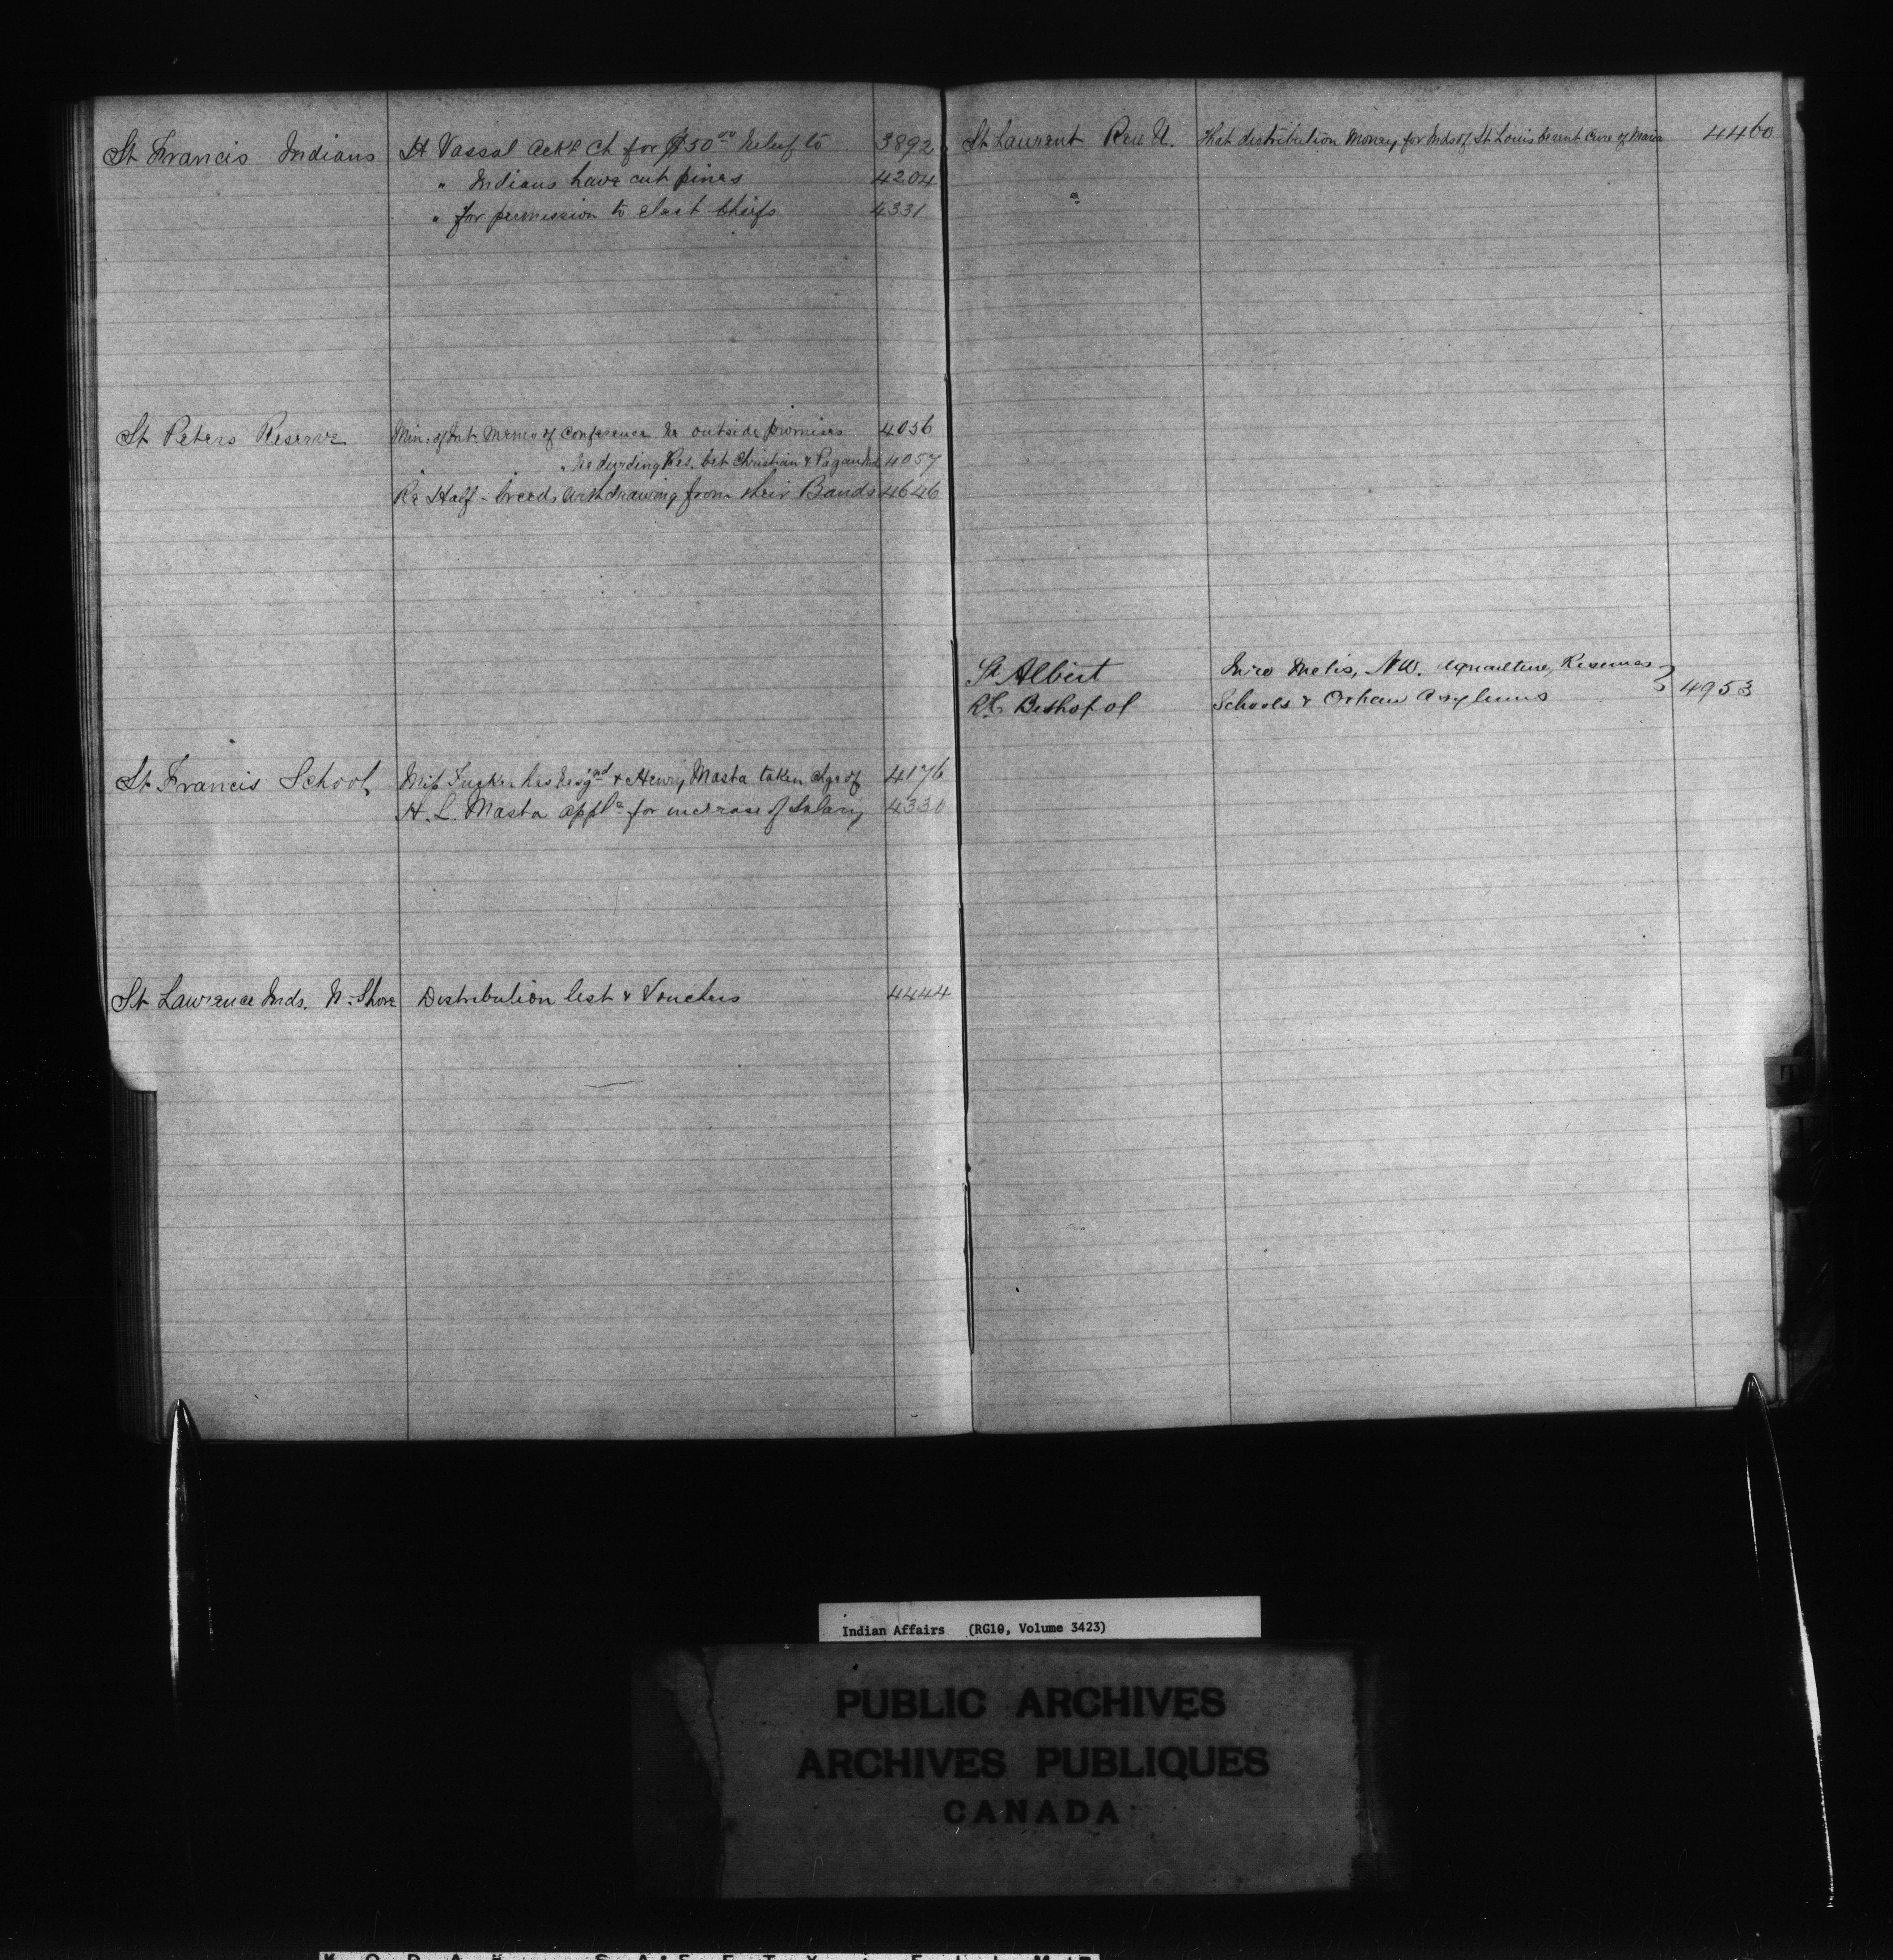 St Francis Indians H Vassal Ackg Ch for $50 00 Relief to 3892
" Indians have cut pines 4204
" for permission to elect Chiefs 4331
St Peters Reserve Min. of Int. Memo of Conference Re outside promises 4056
" Re dividing Res. bet Christian & Pagan Inds 4057
Re Half-breeds withdrawing from their Bands 4646
St Francis School Miss Tucker has Resgnd & Henry Masta taken chge of 4176
H. L. Masta appln for increase of Salary 4330
St Lawrence Inds. N. Shore Distribution list & Vouchers 4444
St Laurent Rev U. That distribution Money for Inds of St Louis be sent Cure of Maria 4460
St Albert Metis, NW. Agriculture, Reserves
R.C. Bishop of Schools & Orphan Asylums 4953
T
Indian Affairs (RG10, Volume 3423)
PUBLIC ARCHIVES
ARCHIVES PUBLIQUES
CANADA
KODAK SAFETY FILM